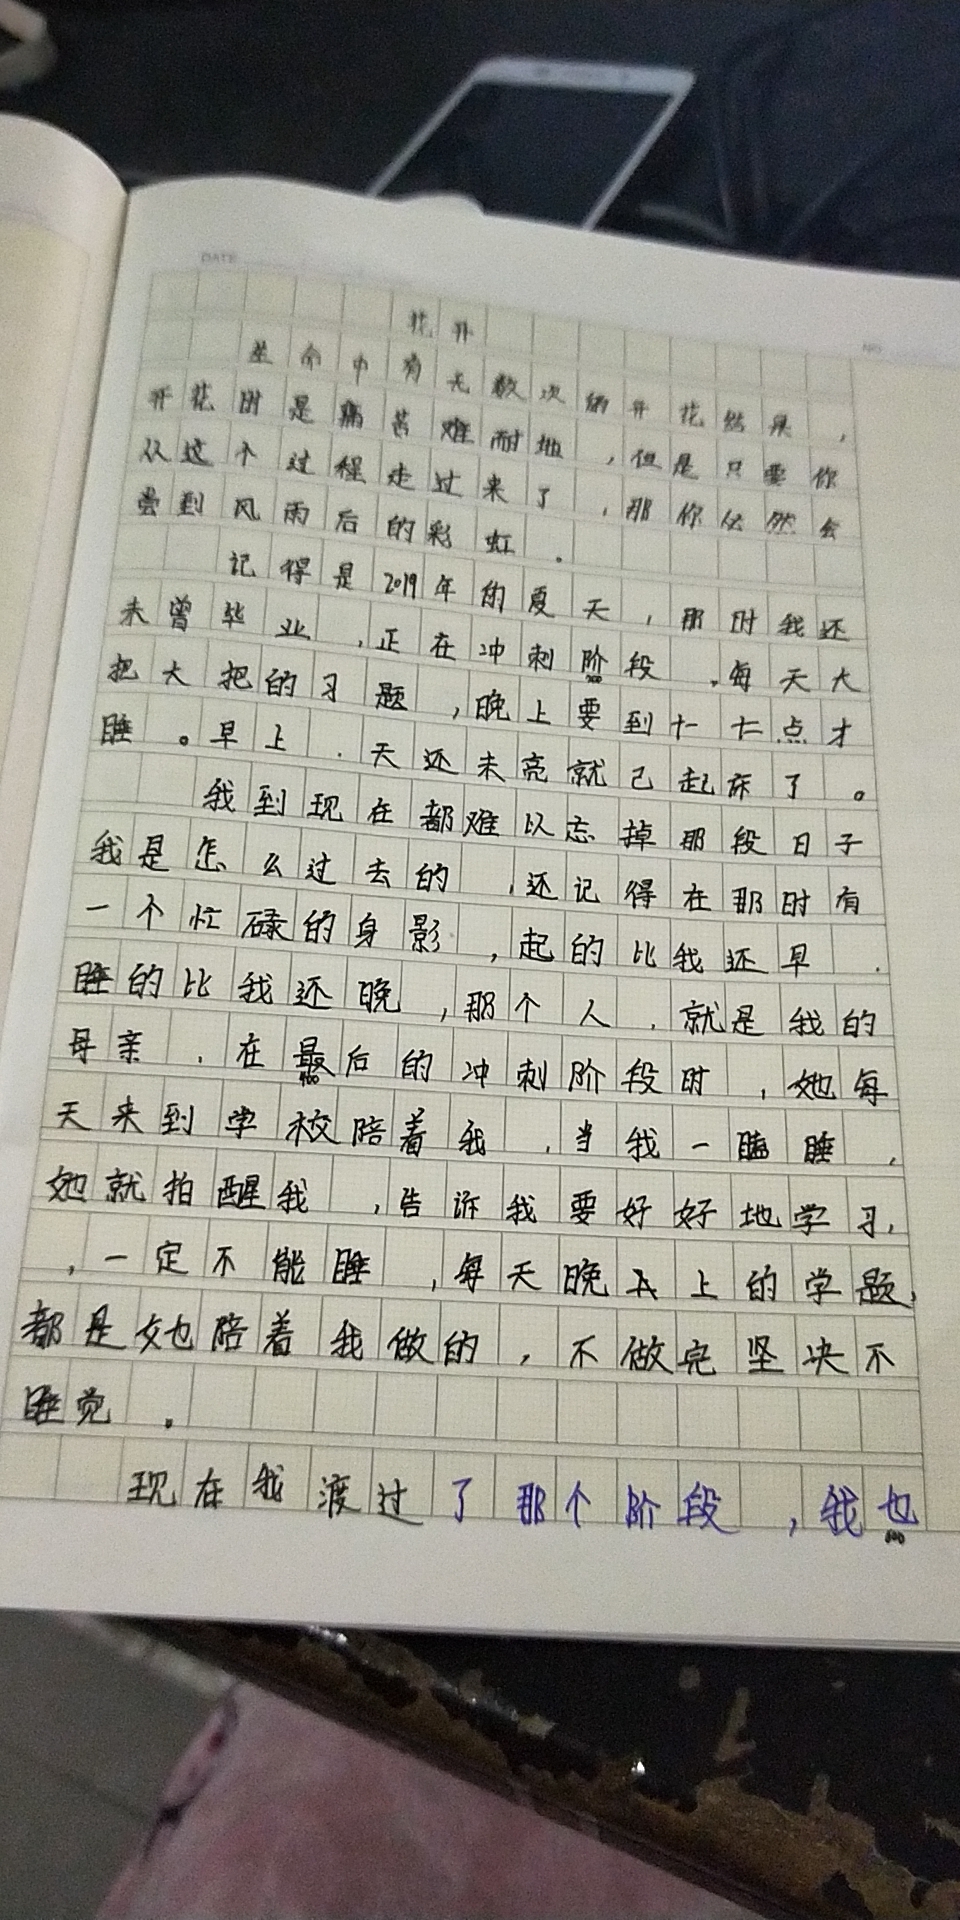 DATE
NO
花开
生命中有无数次的开花结果，
开花时是痛苦难耐地，但是只要你
从这个过程走过来了，那你必然会
尝到风雨后的彩虹。
记得是2019年的夏天，那时我还
未曾毕业，正在冲刺阶段，每天大
把大把的习题，晚上要到十一十二点才
睡。早上，天还未亮就已起床了。
我到现在都难以忘掉那段日子
我是怎么过去的，还记得在那时有
一个忙碌的身影，起的比我还早，
睡的比我还晚，那个人，就是我的
母亲，在最后的冲刺阶段时，她每
天来到学校陪着我，当我一瞌睡，
她就拍醒我，告诉我要好好地学习，
，一定不能睡，每天晚上的学题，
都是她陪着我做的，不做完坚决不
睡觉。
现在我渡过了那个阶段，我也